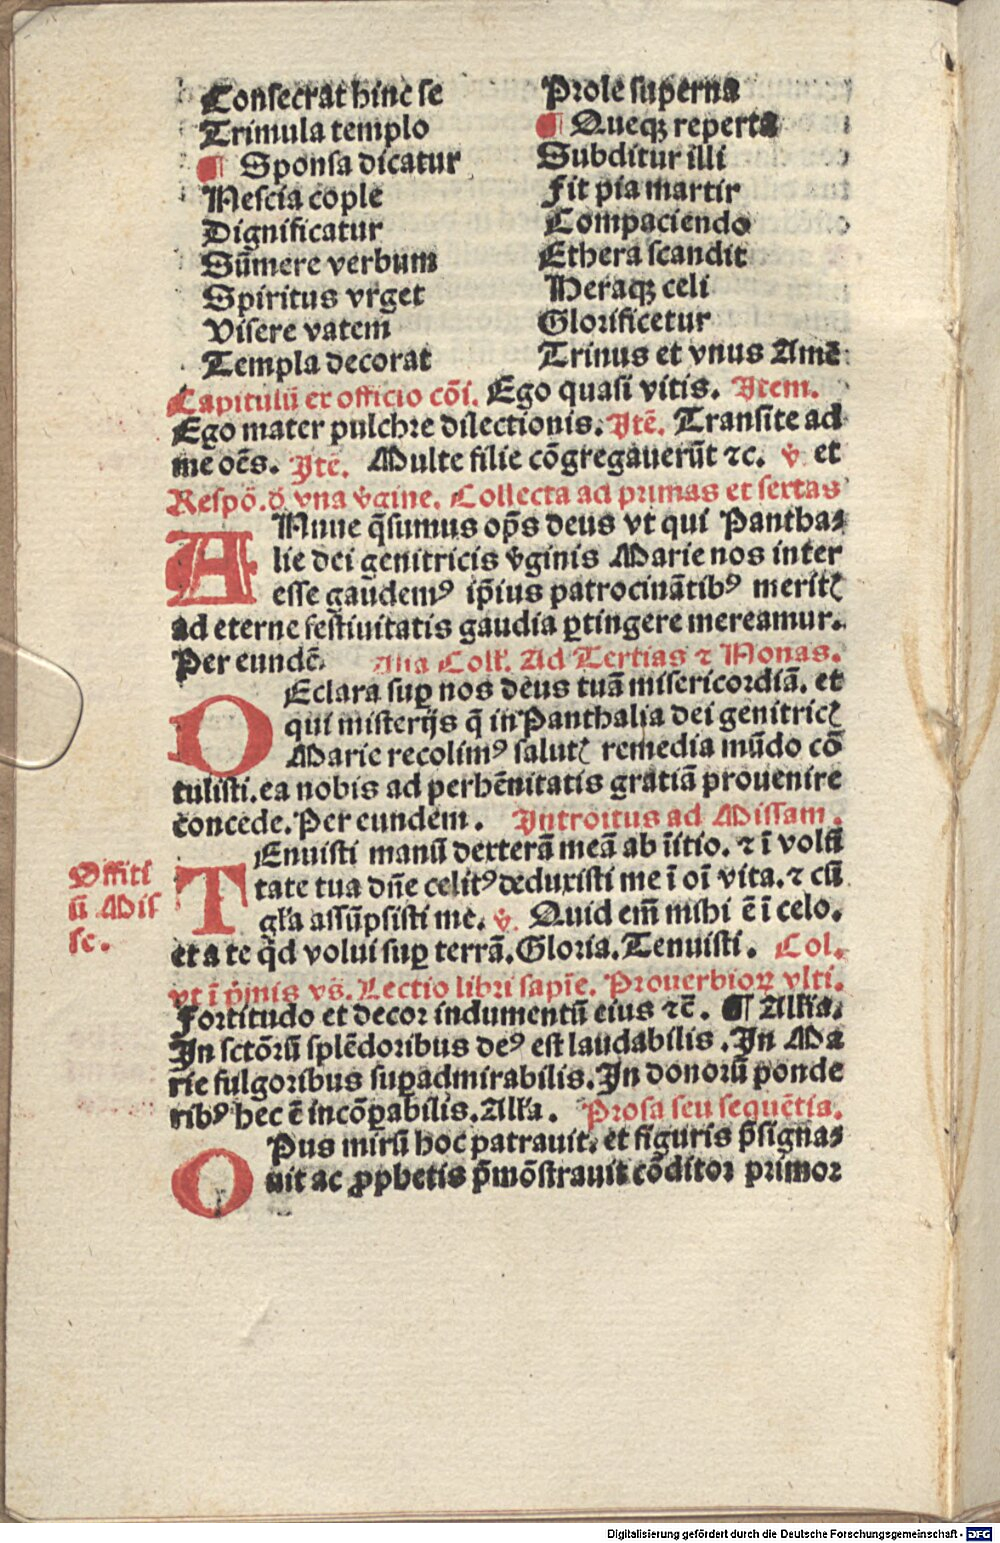 Consecrat hinc se
Trimula templo
¶ Sponsa dicatur
Nescia cople
Dignificatur
Sūmere verbum
Spiritus vrget
Visere vatem
Templa decorat
Prole superna
¶ Queqꝫ reperta
Subditur illi
Fit pia martir
Compaciendo
Ethera scandit
Meraqꝫ celi
Glorificetur
Trinus et vnus Amē
Capitulū ex officio cōi. Ego quasi vitis. Item.
Ego mater pulchre dilectionis. Itē. Transite ad
me oēs. Itē. Multe filie cōgregauerūt ⁊c. v̄ et
Respō. d̄ vna v̄gine. Collecta ad primas et sextas
AMnue q̄sumus op̄s deus vt qui Pantha⸗
lie dei genitricis v̄ginis Marie nos inter
esse gaudemꝰ ip̄ius patrocinātibꝰ meritꝭ
ad eterne festiuitatis gaudia ꝑtingere mereamur.
Per eundē. Alia Coll̄. Ad Tertias ⁊ Nonas.
OEclara suꝑ nos deus tuā misericordiā. et
qui misterijs q̄ in Panthalia dei genitricꝭ
Marie recolimꝰ salutꝭ remedia mūdo cō
tulisti. ea nobis ad perhēnitatis gratiā prouenire
concede. Per eundem. Introitus ad Missam.
TEnuisti manū dexterā meā ab īitio. ⁊ ī volū
tate tua dn̄e celitꝰ deduxisti me ī oī vita. ⁊ cū
gl̄a assūpsisti me. v̄. Quid em̄ mihi ē ī celo.
et a te q̄d volui suꝑ terrā. Gloria. Tenuisti. Col.
vt ī p̄mis vs̄. Lectio libri sapīe. Prouerbioꝝ vlti.
Fortitudo et decor indumentū eius ⁊c̄. ¶ Allīa.
In sctōrū splēdoribus deꝰ est laudabilis. In Ma
rie fulgoribus suꝑadmirabilis. In donorū ponde
ribꝰ hec ē incōꝑabilis. All̄a. Prosa seu sequētia.
OPus mirū hoc patrauit. et figuris p̄signa⸗
uit ac ꝓphetis p̄mōstrauit cōditor primor
Offiti
ū Mis
se.
Digitalisierung gefördert durch die Deutsche Forschungsgemeinschaft - DFG